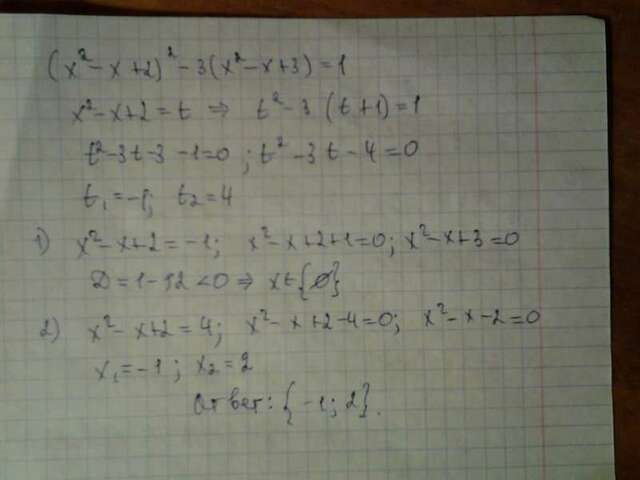 (x²-x+2)²-3(x²-x+3)=1
x²-x+2=t ⇒ t²-3(t+1)=1
t²-3t-3-1=0; t²-3t-4=0
t₁=-1; t₂=4
1) x²-x+2=-1; x²-x+2+1=0; x²-x+3=0
D=1-12<0 ⇒ x∈{∅}
2) x²-x+2=4; x²-x+2-4=0; x²-x-2=0
x₁=-1; x₂=2
Ответ: {-1; 2}.